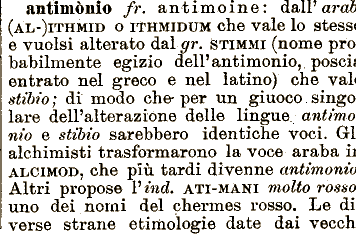 antimònio fr. antimoine: dall' arab
(AL-)ITHMID O ITHMIDUM che vale lo stesso
e vuolsi alterato dal gr. STIMMI (nome pro
babilmente egizio dell'antimonio, poscia
entrato nel greco e nel latino) che vale
stibio; di modo che per un giuoco singo
lare dell'alterazione delle lingue antimo
nio e stibio sarebbero identiche voci. Gl
alchimisti trasformarono la voce araba in
ALCIMOD, che più tardi divenne antimonio
Altri propose l'ind. ATI-MANI molto rosso
uno dei nomi del chermes rosso. Le di
verse strane etimologie date dai vecch